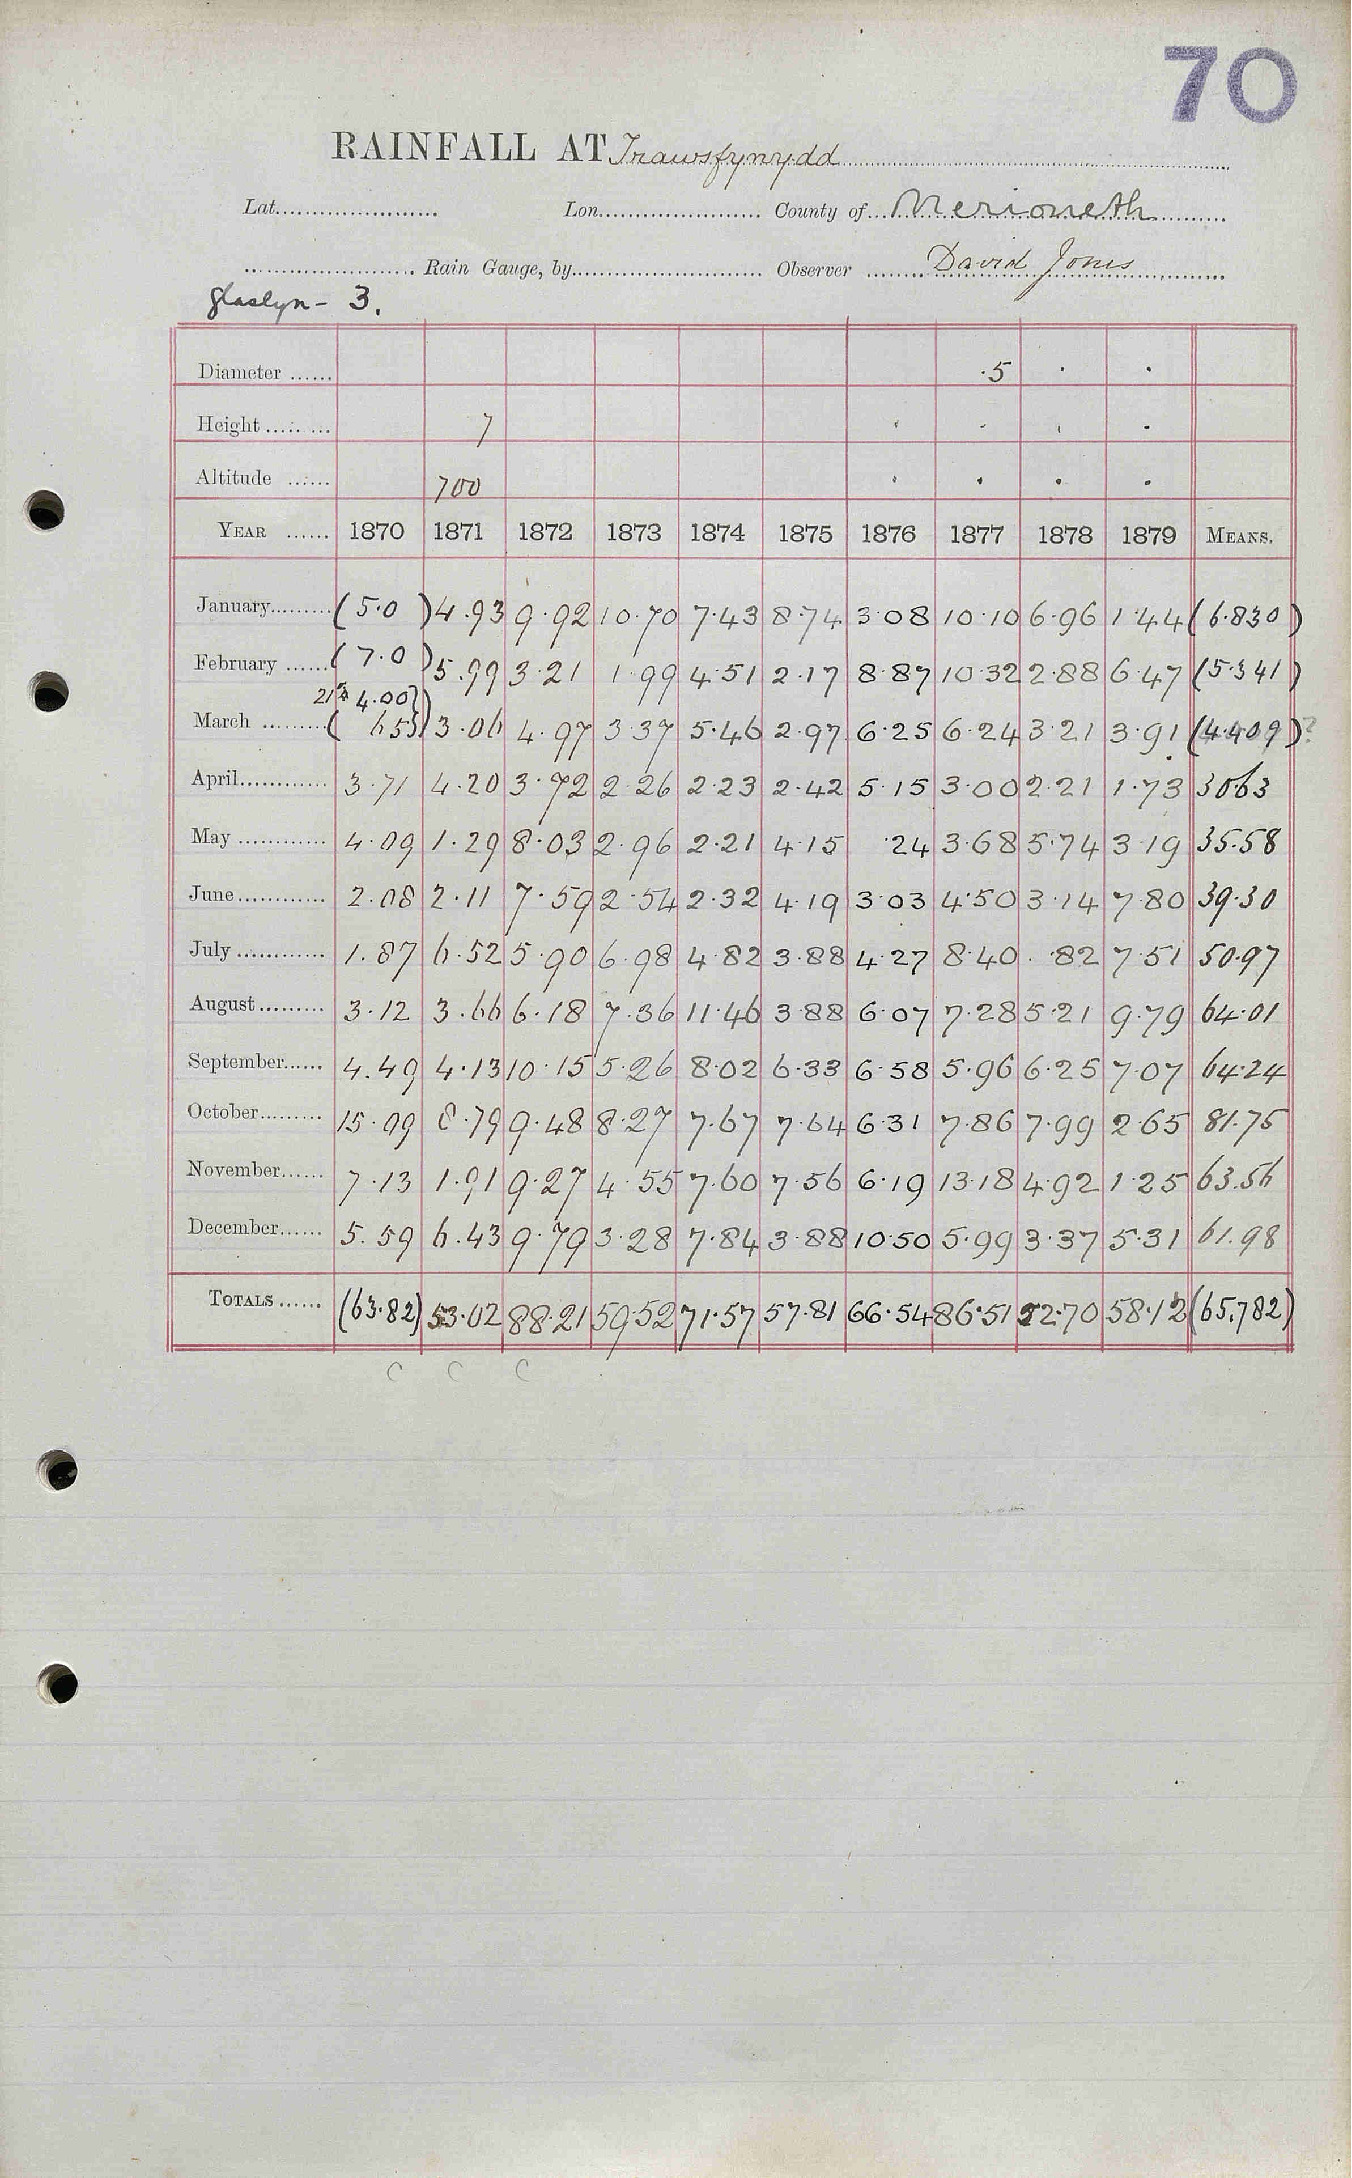 70
RAINFALL AT Trawsfynydd
Lat. Lon. County of Merioneth
Rain Gauge, by Observer David Jones
Glaslyn - 3.
Diameter ...... ·5 · ·
Height ......... 7
Altitude ...... 700
YEAR ...... 1870 1871 1872 1873 1874 1875 1876 1877 1878 1879 MEANS.
January......... (5·0) 4·93 9·92 10·70 7·43 8·74 3·08 10·10 6·96 1·44 (6·830)
February ...... (7·0) 5·99 3·21 1·99 4·51 2·17 8·87 10·32 2·88 6·47 (5·341)
4·00
March ......... (65) 3·06 4·97 3·37 5·46 2·97 6·25 6·24 3·21 3·91 (4·409)?
April............ 3·71 4·20 3·72 2·26 2·23 2·42 5·15 3·00 2·21 1·73 3063
May ............ 4·09 1·29 8·03 2·96 2·21 4·15 ·24 3·68 5·74 3·19 35·58
June............ 2·08 2·11 7·59 2·54 2·32 4·19 3·03 4·50 3·14 7·80 39·30
July ............ 1·87 6·52 5·90 6·98 4·82 3·88 4·27 8·40 ·82 7·51 50·97
August......... 3·12 3·66 6·18 7·36 11·46 3·88 6·07 7·28 5·21 9·79 64·01
September...... 4·49 4·13 10·15 5·26 8·02 6·33 6·58 5·96 6·25 7·07 64·24
October......... 15·09 8·79 9·48 8·27 7·67 7·64 6·31 7·86 7·99 2·65 81·75
November...... 7·13 1·91 9·27 4·55 7·60 7·56 6·19 13·18 4·92 1·25 63·56
December...... 5·59 6·43 9·79 3·28 7·84 3·88 10·50 5·99 3·37 5·31 61·98
TOTALS ...... (63·82) 53·02 88·21 59·52 71·57 57·81 66·54 86·51 52·70 58·12 (65·782)
C C C